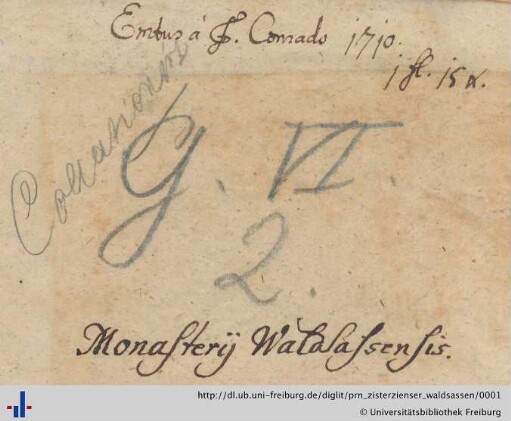 Emtus á Fr. Conrado 1710.
1 fl. 15 x.
G. VI.
2.
Monasterij Waldsassensis.
http://dl.ub.uni-freiburg.de/diglit/prn_zisterzienser_waldsassen/0001
© Universitätsbibliothek Freiburg